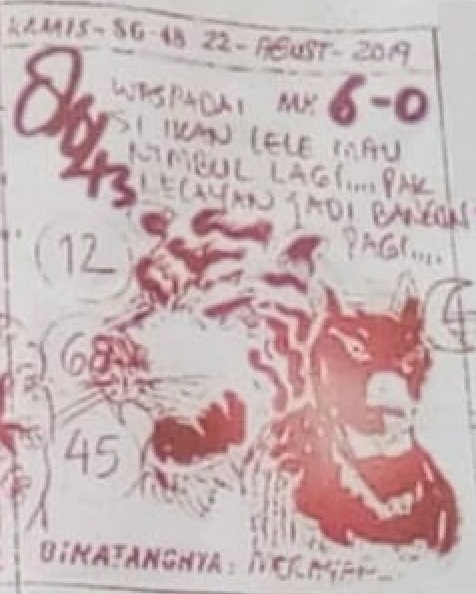 KEMIS - SG - 48 22 - AGUST - 2019
WASPADAI MK 6-0
SI IKAN LELE MAU
NIMBUL LAGI.... PAK
NELAYAN JADI BANGUN
PAGI....
8
6
43
12
68
45
4
BINATANGNYA: NELAYAN